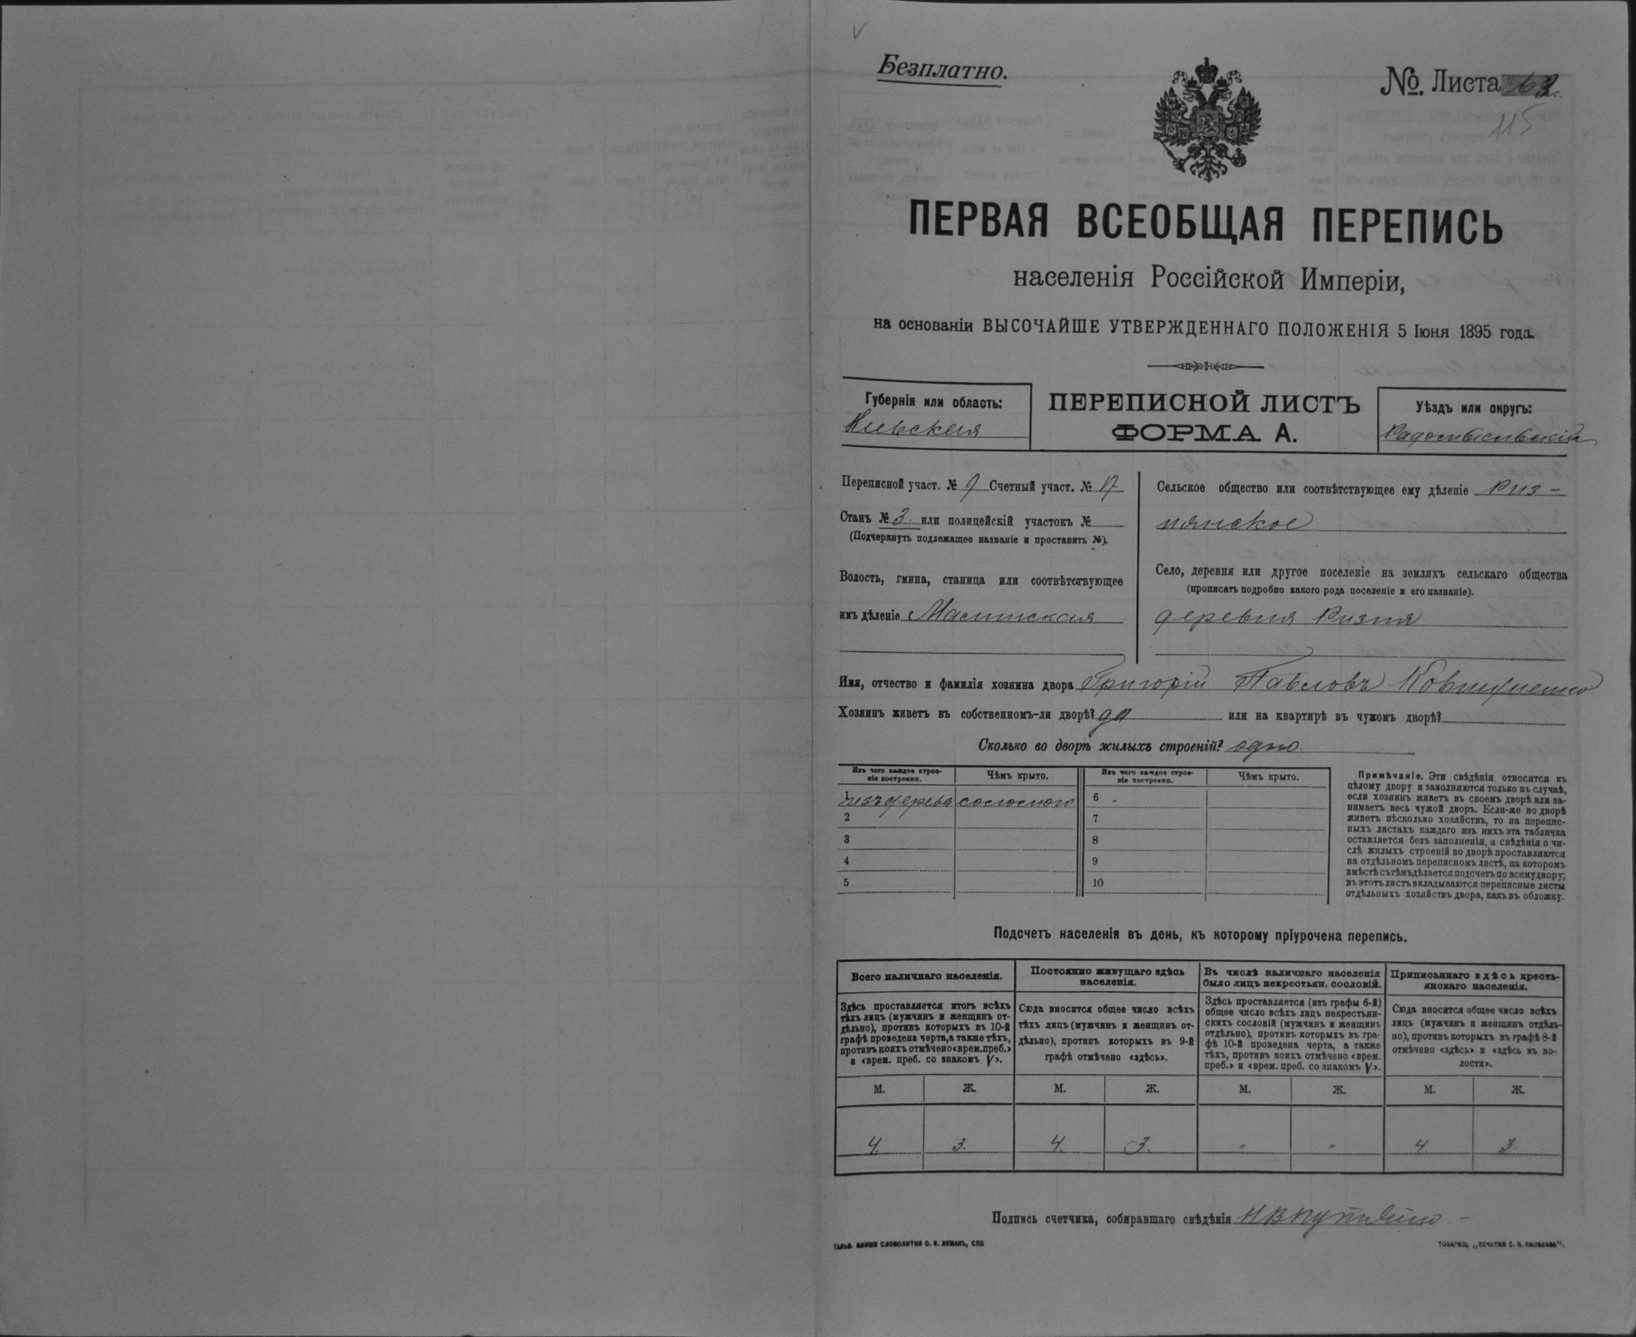 Безплатно.
№. Листа 63
115
ПЕРВАЯ ВСЕОБЩАЯ ПЕРЕПИСЬ
населенія Россійской Имперіи,
на основаніи ВЫСОЧАЙШЕ УТВЕРЖДЕННАГО ПОЛОЖЕНІЯ 5 Іюня 1895 года.
Губернія или область:
Кіевская
ПЕРЕПИСНОЙ ЛИСТЪ
ФОРМА А.
Уѣздъ или округъ:
Радомысльскій
Переписной участ. № 9 Счетный участ. № 17
Станъ № 3 или полицейскій участокъ №
(Подчеркнуть подлежащее названіе и проставить №).
Волость, гмина, станица или соотвѣтствующее
имъ дѣленіе Малинская
Сельское общество или соотвѣтствующее ему дѣленіе Риз-
нянское
Село, деревня или другое поселеніе на земляхъ сельскаго общества
(прописать подробно какого рода поселеніе и его названіе).
деревня Ризня
Имя, отчество и фамилія хозяина двора Григорій Павловъ
Хозяинъ живетъ въ собственномъ-ли дворѣ? да или на квартирѣ въ чужомъ дворѣ?
Сколько во дворѣ жилыхъ строеній? одно.
Изъ чего каждое строе-
ніе построено.
Чѣмъ крыто.
Изъ чего каждое строе-
ніе построено.
Чѣмъ крыто.
1 изъ дерева соломою 6 "
2 7
3 8
4 9
5 10
Примѣчаніе. Эти свѣдѣнія относятся къ
цѣлому двору и заполняются только въ случаѣ,
если хозяинъ живетъ въ своемъ дворѣ или за-
нимаетъ весь чужой дворъ. Если-же во дворѣ
живетъ нѣсколько хозяйствъ, то на перепис-
ныхъ листахъ каждаго изъ нихъ эта табличка
оставляется безъ заполненія, а свѣдѣнія о чи-
слѣ жилыхъ строеній во дворѣ проставляются
на отдѣльномъ переписномъ листѣ, на которомъ
вмѣстѣ съ тѣмъ дѣлается подсчетъ по всему двору;
въ этотъ листъ вкладываются переписные листы
отдѣльныхъ хозяйствъ двора, какъ въ обложку.
Подсчетъ населенія въ день, къ которому пріурочена перепись.
Всего наличнаго населенія.
Здѣсь проставляется итогъ всѣхъ
тѣхъ лицъ (мужчинъ и женщинъ от-
дѣльно), противъ которыхъ въ 10-й
графѣ проведена черта, а также тѣхъ,
противъ коихъ отмѣчено «врем. преб.»
и «врем. преб. со знакомъ V».
Постоянно живущаго здѣсь
населенія.
Сюда вносится общее число всѣхъ
тѣхъ лицъ (мужчинъ и женщинъ от-
дѣльно), противъ которыхъ въ 9-й
графѣ отмѣчено «здѣсь».
Въ числѣ наличнаго населенія
было лицъ некрестьян. сословій.
Здѣсь проставляется (изъ графы 6-й)
общее число всѣхъ лицъ некрестьян-
скихъ сословій (мужчинъ и женщинъ
отдѣльно), противъ которыхъ въ гра-
фѣ 10-й проведена черта, а также
тѣхъ, противъ коихъ отмѣчено «врем.
преб.» и «врем. преб. со знакомъ V».
Приписаннаго здѣсь кресть-
янскаго населенія.
Сюда вносится общее число всѣхъ
лицъ (мужчинъ и женщинъ отдѣль-
но), противъ которыхъ въ графѣ 8-й
отмѣчено «здѣсь» и «здѣсь въ во-
лости».
М. Ж. М. Ж. М. Ж. М. Ж.
4. 3. 4. 3. " " 4 3.
Подпись счетчика, собиравшаго свѣдѣнія
ТОВАРИЩ. „ПЕЧАТНЯ С. П. ЯКОВЛЕВА“.